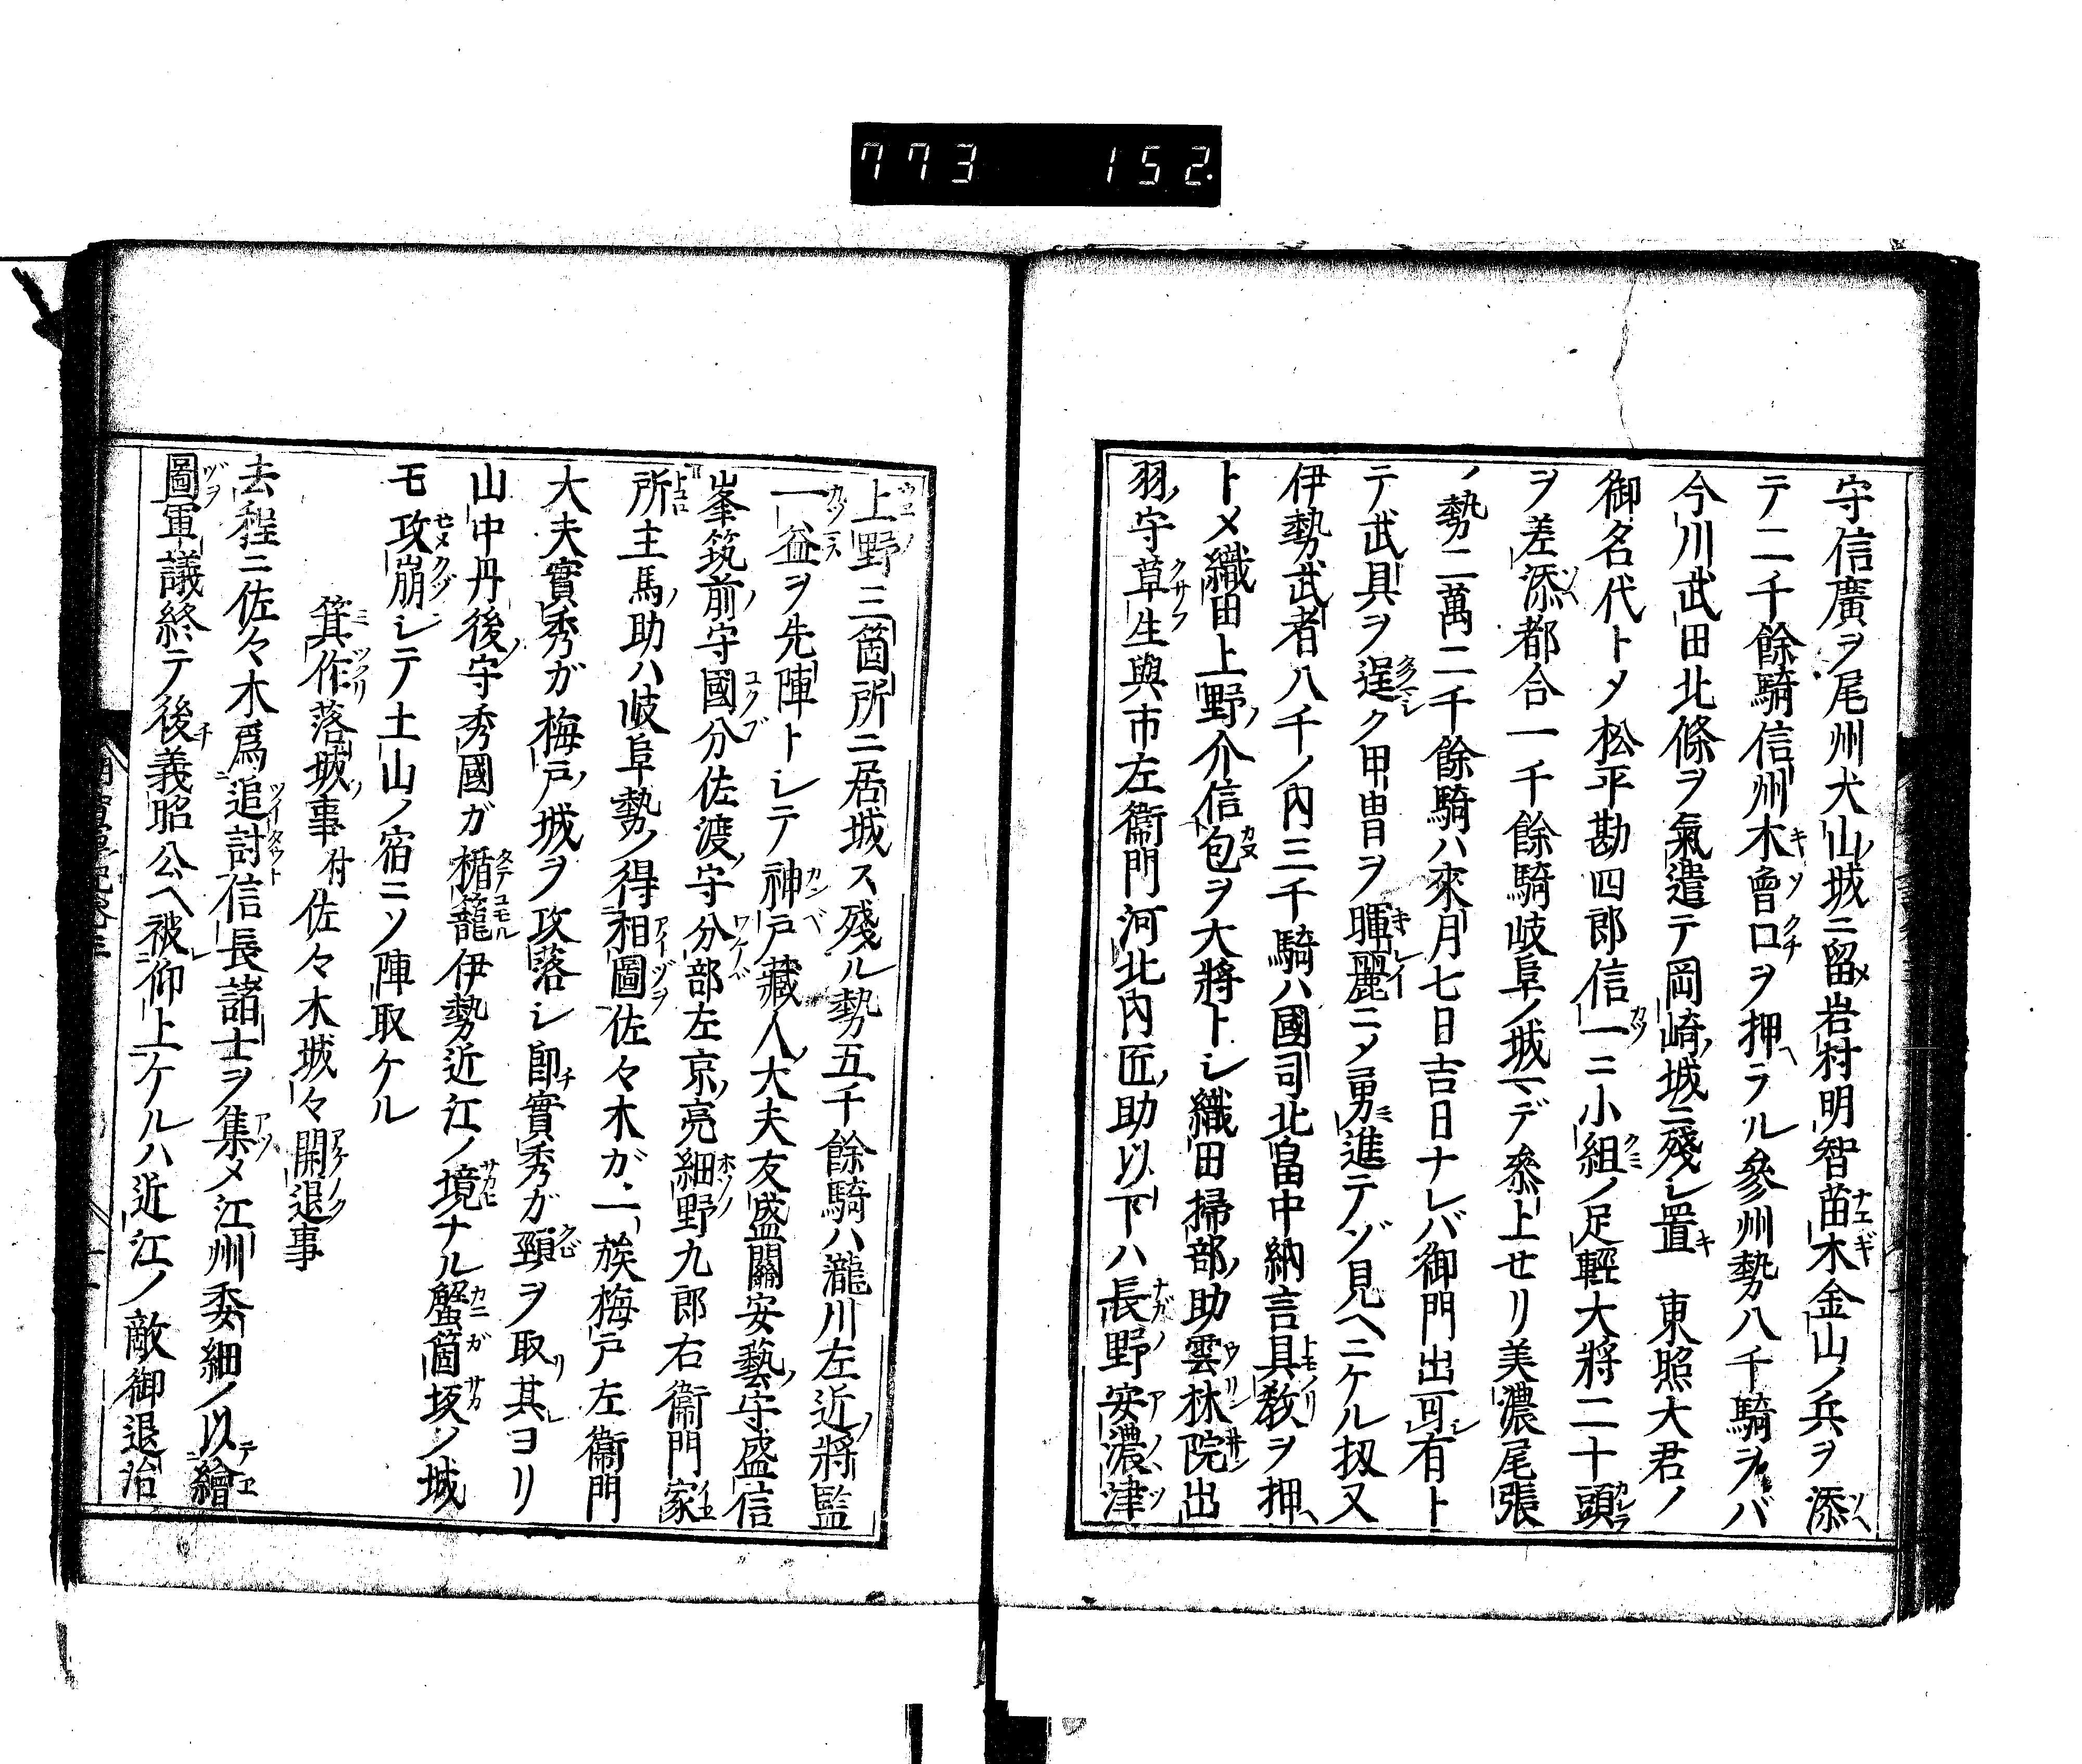 773 152.
守信廣ヲ尾州犬山ノ城ニ留メ岩村明智苗木金山ノ兵ヲ添ヘ
テ二千餘騎信州木曾口ヲ押ヘラル參州勢八千騎ヲバ
今川武田北條ヲ氣遣テ岡崎ノ城ニ殘シ置キ 東照大君ノ
御名代トメ松平勘四郎信一ニ小組ノ足輕大將二十頭
ヲ差添ヘ都合一千餘騎岐阜ノ城マデ參上セリ美濃尾張
ノ勢二萬二千餘騎ハ來月七日吉日ナレバ御門出可レ有ト
テ武具ヲ逞ク甲冑ヲ暉麗ニメ勇ミ進テゾ見ヘニケル扨又
伊勢武者八千ノ內三千騎ハ國司北畠中納言具教ヲ押ヘ
トメ織田上野ノ介信包ヲ大將トシ織田掃部ノ助雲林院出
羽ノ守草生與市左衞門河北內匠ノ助以下ハ長野安濃津
上野三箇所ニ居城ス殘ル勢五千餘騎ハ瀧川左近ノ將監
一益ヲ先陣トシテ神戸藏人ノ大夫友盛關安藝ノ守盛信
峯筑前ノ守國分佐渡ノ守分部左京ノ亮細野九郎右衞門家
所主馬ノ助ハ岐阜勢ノ得二相圖一佐々木ガ一族梅戸左衞門
大夫實秀ガ梅戸ノ城ヲ攻落シ卽チ實秀ガ頸ヲ取リ其レヨリ
山中丹後ノ守秀國ガ楯籠伊勢近江ノ境ナル蟹箇坂ノ城
モ攻崩シテ土山ノ宿ニソ陣取ケル
箕作落城ノ事 付 佐々木城々開退事
去程ニ佐々木爲二追討一信長諸士ヲ集メ江州委細ノ以二繪
圖一軍議終テ後チ義昭公ヘ被レ仰上ケルハ近江ノ敵御退治